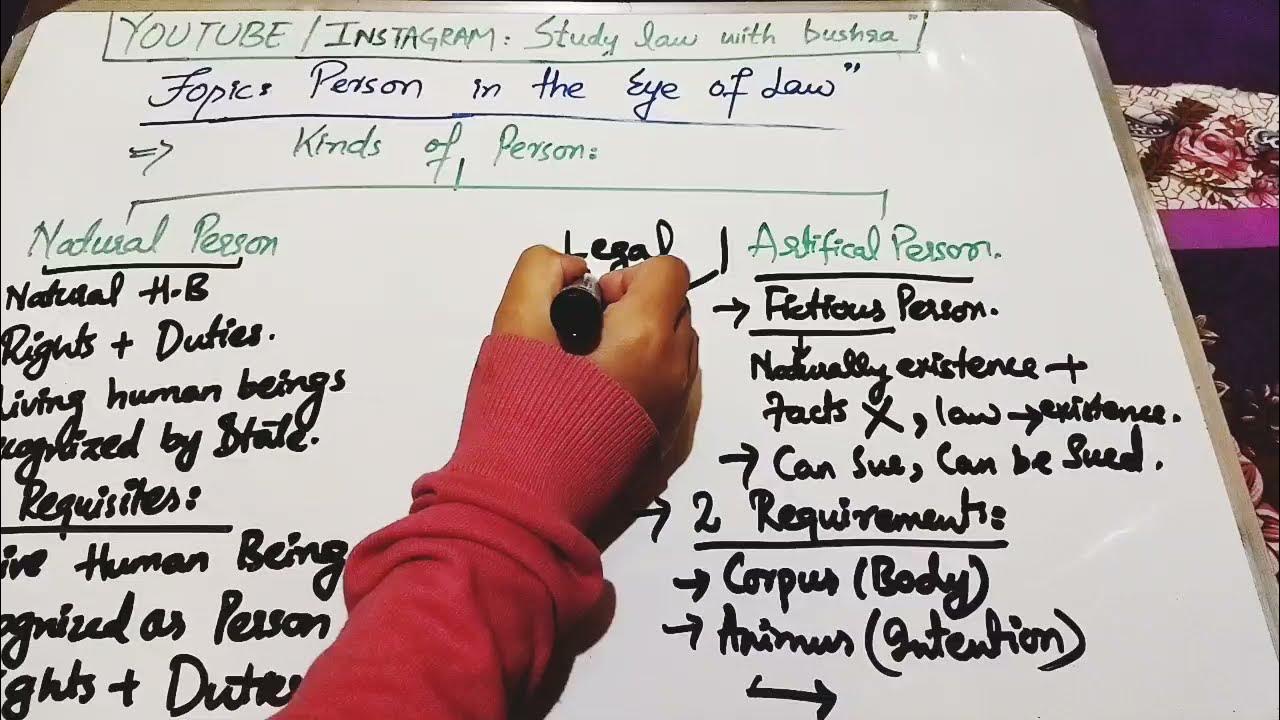 YOUTUBE / INSTAGRAM: Study law with bushra"
Topic: Person in the Eye of Law"
=> Kinds of Person:
Natural Person
Natural H.B
Rights + Duties.
Living human beings
cognized by State.
Requisites:
ive Human Being
ognized as Person
ghts + Duties
Legal
Artifical Person.
→ Fictious Person.
Naturally existence +
Facts X, law → existence.
→ Can Sue, Can be Sued.
→ 2 Requirements:
→ Corpus (Body)
→ Animus (Intention)